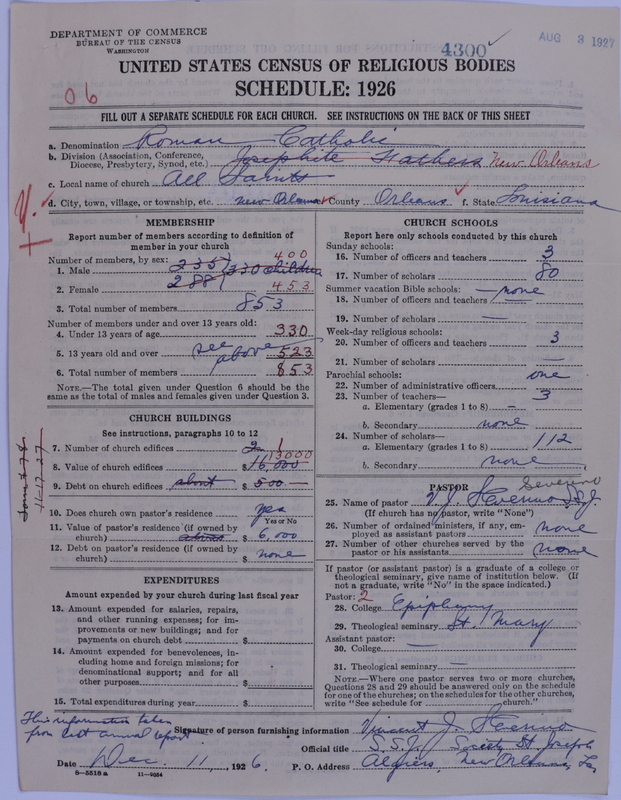 DEPARTMENT OF COMMERCE
BUREAU OF THE CENSUS
WASHINGTON
4300 ✓
AUG 3 1927
UNITED STATES CENSUS OF RELIGIOUS BODIES
SCHEDULE: 1926
06
FILL OUT A SEPARATE SCHEDULE FOR EACH CHURCH. SEE INSTRUCTIONS ON THE BACK OF THIS SHEET
a. Denomination Roman Catholic
b. Division (Association, Conference, Diocese, Presbytery, Synod, etc.) Josephite Fathers New Orleans
c. Local name of church All Saints
d. City, town, village, or township, etc. New Orleans County Orleans ✓ f. State Louisiana
MEMBERSHIP
Report number of members according to definition of
member in your church
Number of members, by sex: 400
1. Male 235 330 children
2. Female 288 453
3. Total number of members 853
Number of members under and over 13 years old:
4. Under 13 years of age 330
5. 13 years old and over see above 523
6. Total number of members 853
NOTE.—The total given under Question 6 should be
same as the total of males and females given under Question 3.
CHURCH BUILDINGS
See instructions, paragraphs 10 to 12
7. Number of church edifices 1
8. Value of church edifices $16,000
9. Debt on church edifices about $500—
10. Does church own pastor's residence? yes
Yes or No
11. Value of pastor's residence (if owned by
church) $6,000
12. Debt on pastor's residence (if owned by
church) $ none
EXPENDITURES
Amount expended by your church during last fiscal year
13. Amount expended for salaries, repairs,
and other running expenses; for im-
provements or new buildings; and for
payments on church debt $
14. Amount expended for benevolences, in-
cluding home and foreign missions; for
denominational support; and for all
other purposes $
15. Total expenditures during year $
CHURCH SCHOOLS
Report here only schools conducted by this church
Sunday schools:
16. Number of officers and teachers 3
17. Number of scholars 80
Summer vacation Bible schools: — none
18. Number of officers and teachers —
19. Number of scholars —
Week-day religious schools:
20. Number of officers and teachers 3
21. Number of scholars —
Parochial schools:
22. Number of administrative officers one
23. Number of teachers— 3
a. Elementary (grades 1 to 8) —
b. Secondary none
24. Number of scholars—
a. Elementary (grades 1 to 8) 112
b. Secondary none
PASTOR
Severino
25. Name of pastor V. J.
(If church has no pastor, write "None")
26. Number of ordained ministers, if any, em-
ployed as assistant pastors none
27. Number of other churches served by the
pastor or his assistants none
If pastor (or assistant pastor) is a graduate of a college or
theological seminary, give name of institution below. (If
not a graduate, write "No" in the space indicated.)
Pastor: 2
28. College Epiphany
29. Theological seminary St. Mary
Assistant pastor:
30. College —
31. Theological seminary —
NOTE.—Where one pastor serves two or more churches,
Questions 28 and 29 should be answered only on the schedule
for one of the churches; on the schedules for the other churches,
write "See schedule for church."
This information taken
from last annual report
Signature of person furnishing information Vincent J.
Official title S.S.J. Society St. Joseph
Date Dec. 11, 1926.
P. O. Address Algiers, New Orleans, La.
8-5518 a 11-9554
11-17-27